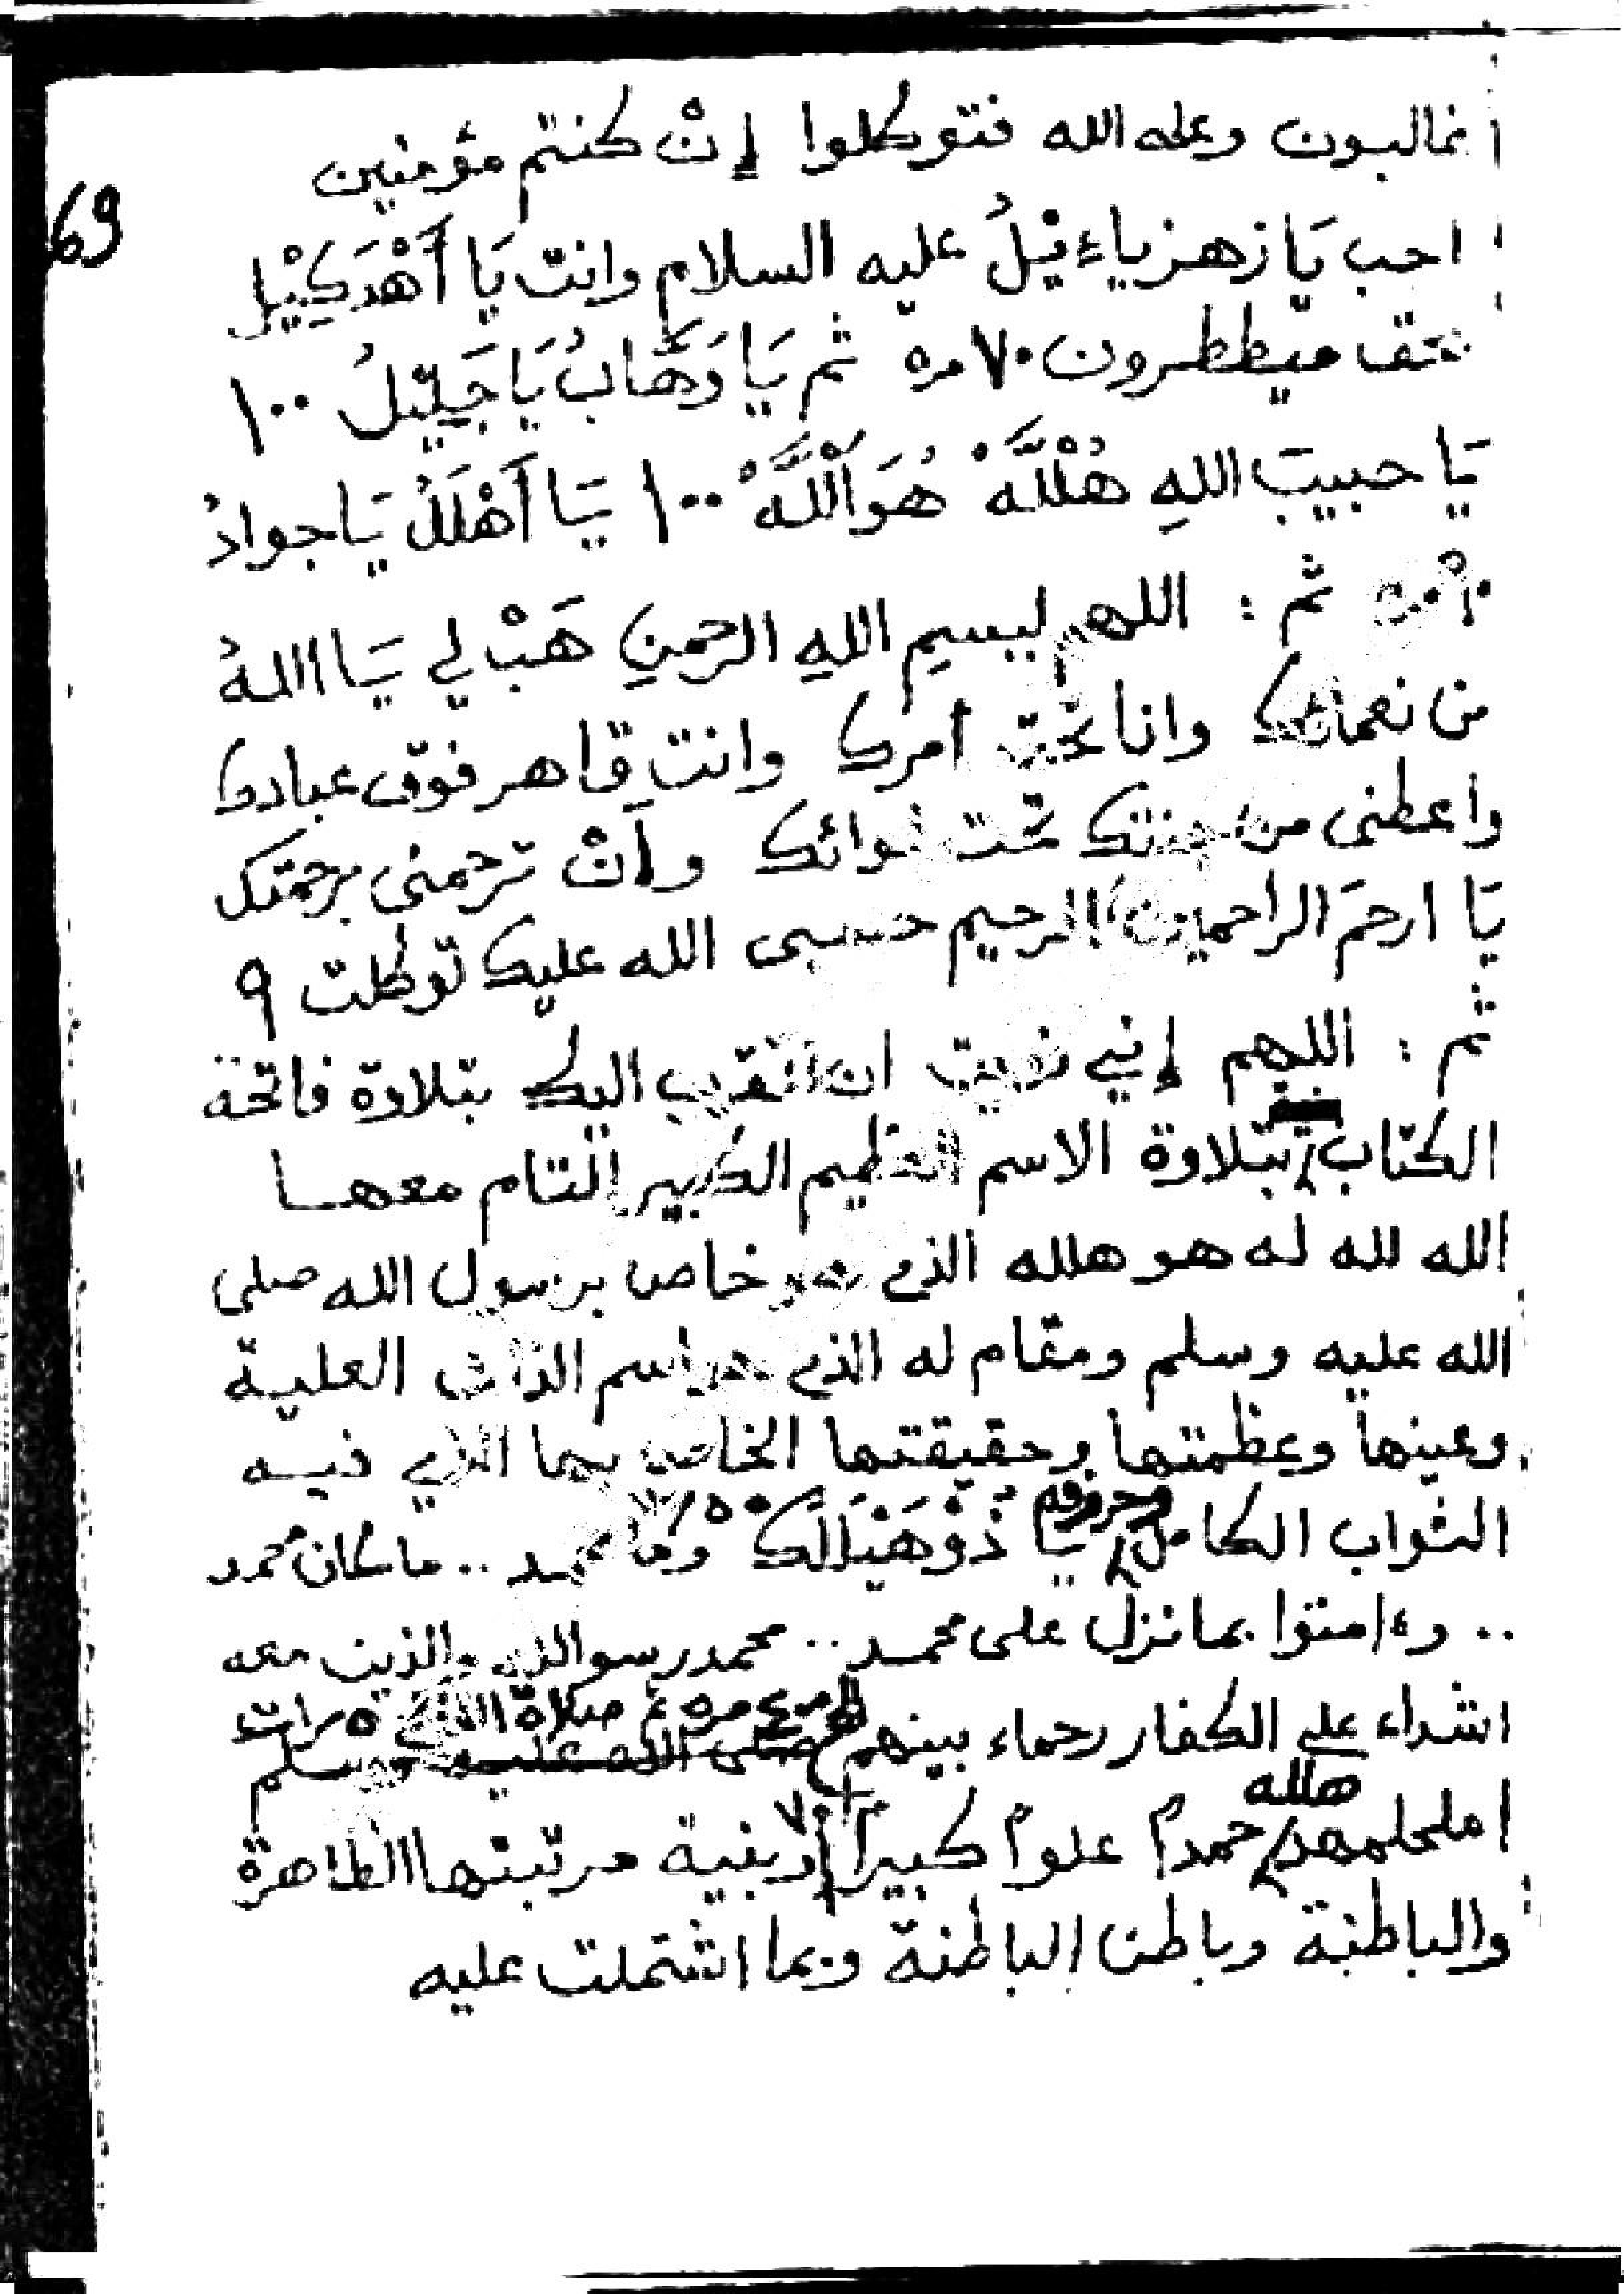 غالبون وعلى الله فتوكلوا إنْ كنتم مؤمنين
69
اجب يَا زهزياءيْلُ عليه السلام وانت يَا أَهْدَكِيْل
بحق ميططرون ٧٠ مره ثم يَا وَهَّابُ يَا جَلِيْلُ ١٠٠
يَا حبيبَ اللهِ هُلْلَّهْ هُوَ اَلْلَّهْ ١٠٠ يَا أَهْلَلُ يَا جوادُ
مره ثم : اللهم ببسمِ اللهِ الرحمنِ هَبْ لي يَا اللهُ
من نعمائك وانا تحت امرك وانت قاهر فوق عبادك
واعطنى من جنتك تحت لوائك وأنْ ترحمنى برحمتك
يَا ارحمَ الراحمين الرحيم حسبى الله عليك توكلت ٩
ثم : اللهم إني نويت ان اتقرب اليك بتلاوة فاتحة
الكتاب بتلاوة الاسم العظيم الكبير التام معها
الله لله له هو هلله الذى هو خاص برسول الله صلى
الله عليه وسلم ومقام له الذى هو اسم الذات العلية
وعينها وعظمتها وحقيقتها الخاص بها الذي فيه
وحروفه
الثواب الكامل يَا ذوْهَيْلَالَك وما محمد .. ما كان محمد
.. وءامنوا بما نزل على محمد .. محمد رسول الله والذين معه
مره ثم صلاة الفتح ٥ مرات
اشداء على الكفار رحماء بينهم صلى الله عليه وسلم
هلله
٧٠
املحلمهم حمدم علوا كبيرا بنية مرتبتها الظاهرة
والباطنة وباطن الباطنة وبما اشتملت عليه